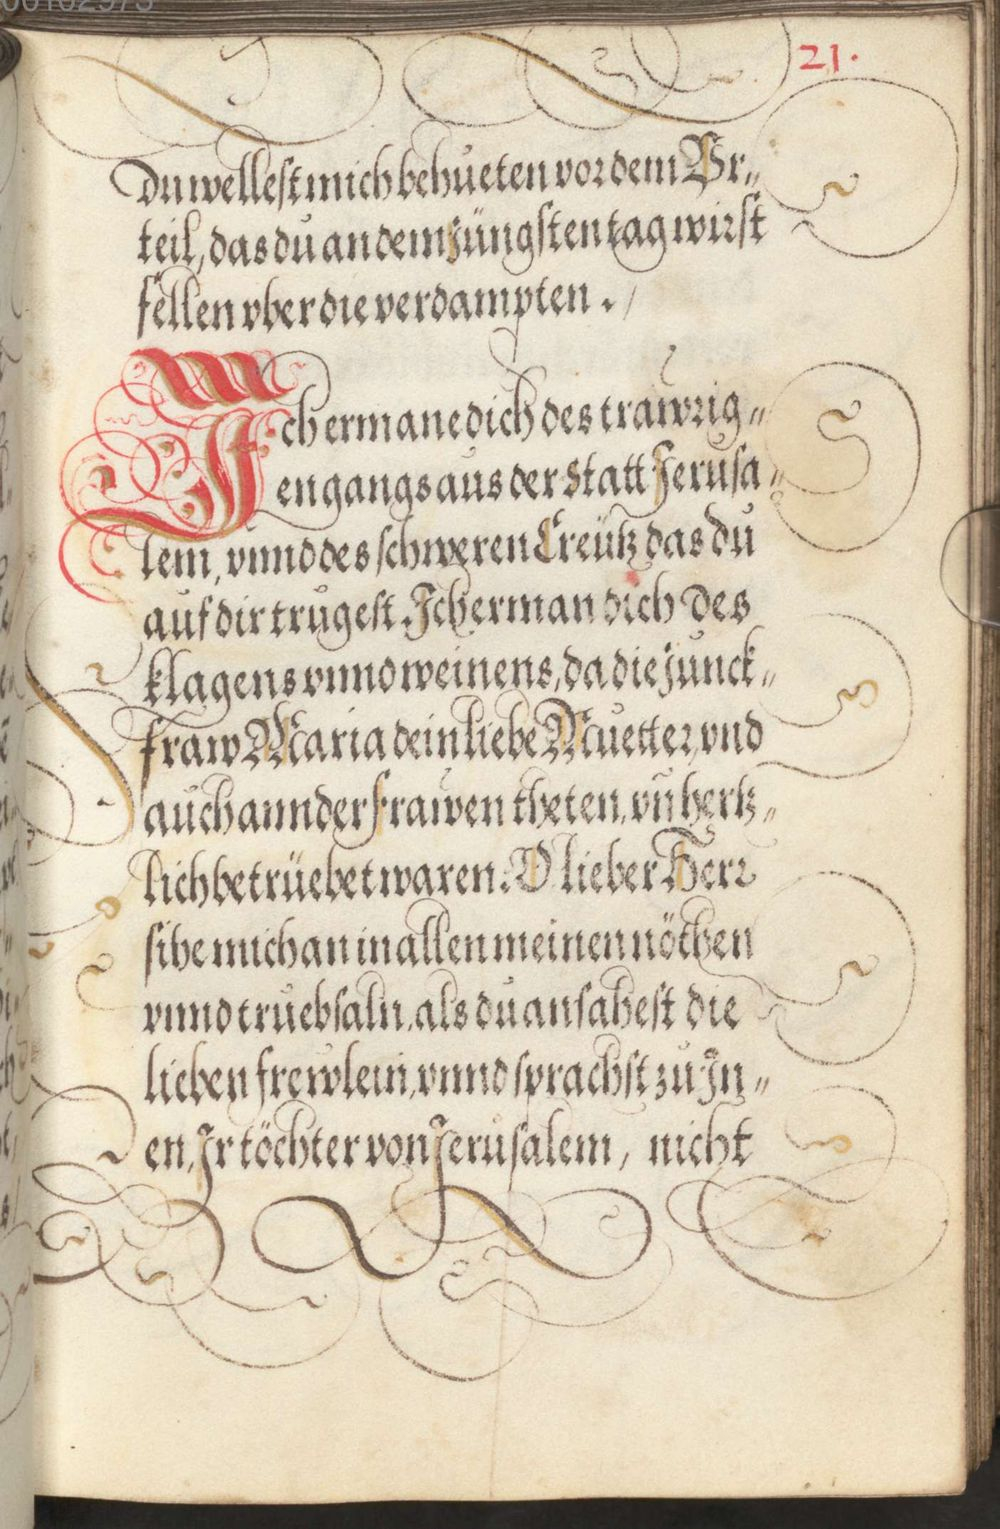 21.
Du wellest mich behueten vor dem Vr„
teil, das du an dem Jüngsten tag wirst
fellen vber die verdampten ./
Ich ermane dich des trawrig„
en gangs aus der Statt Jerusa„
lem, vnnd des schweren Creütz das du
auf dir trugest. Ich erman dich des
klagens vnnd weinens, da die Junck„
fraw Maria dein liebe Muetter, vnd
auch annder frawen theten, vn̄ hertz„
lich betrüebet waren. O lieber Herr
sihe mich an in allen meinen nöthen
vnnd truebsaln, als du ansahest die
lieben frewlein, vnnd sprachst zu Jn„
en, Jr töchter von Jerusalem, nicht